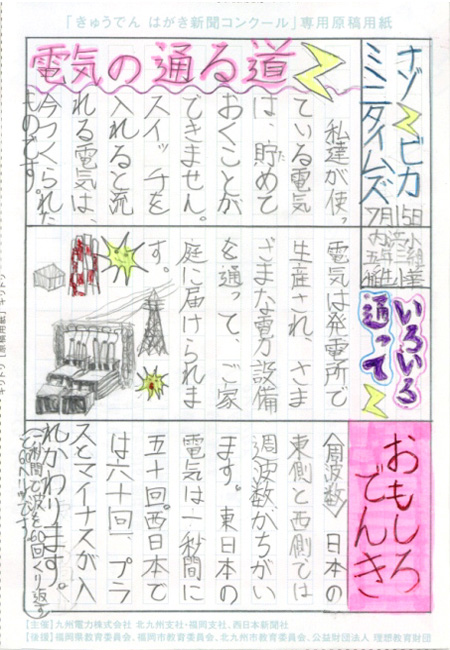 「きゅうでん はがき新聞コンクール」専用原稿用紙
ナゾピカ
ミニタイムズ
7月15日
五年三組
電気の通る道
私達が使っ
ている電気
は、貯めて
た
おくことが
できません。
スイッチを
入れると流
れる電気は、
今つくられた
ものです。
いろいろ
通って
電気は発電所で
生産され、さま
ざまな電力設備
を通って、ご家
庭に届けられま
す。
おもしろ
でんき
〈周波数〉日本の
東側と西側では
周波数がちがい
ます。東日本の
電気は一秒間に
五十回。西日本で
は六十回、プラ
スとマイナスが入
れかわります。
キリトリ
【主催】九州電力株式会社 北九州支社・福岡支社、西日本新聞社
【後援】福岡県教育委員会、福岡市教育委員会、北九州市教育委員会、公益財団法人 理想教育財団